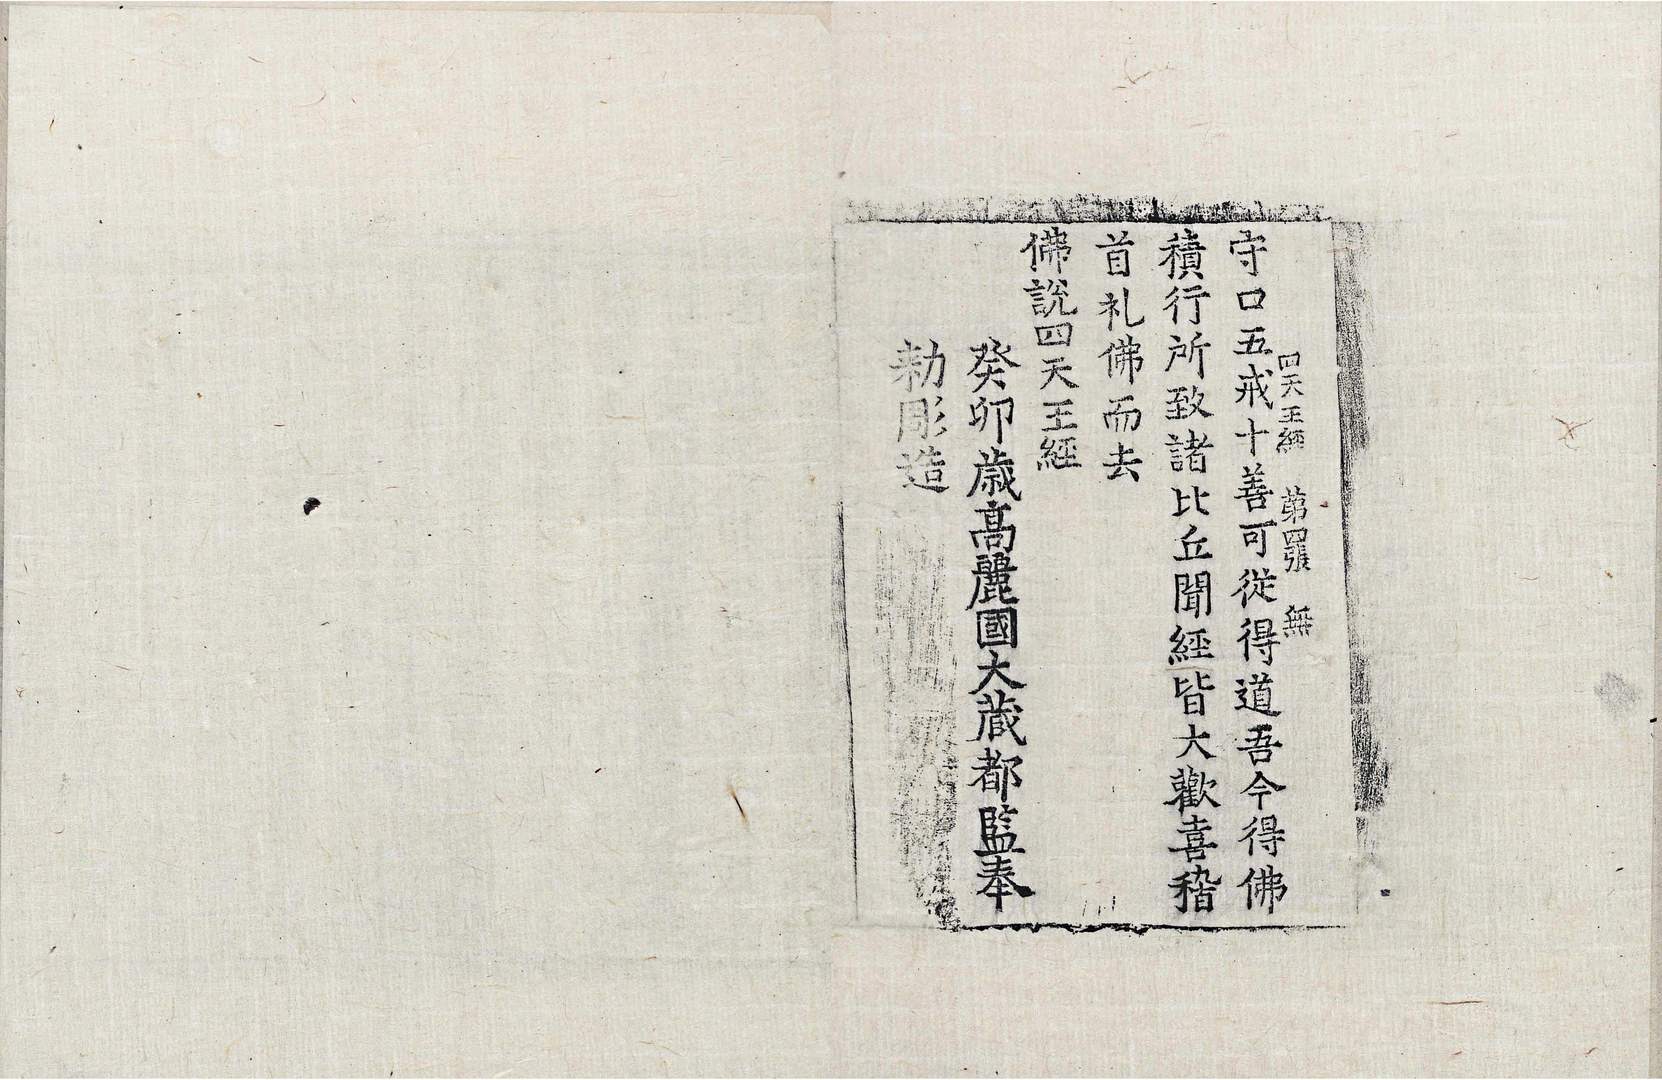 四天王経 第四張 無
守口五戒十善可從得道吾今得佛
積行所致諸比丘聞經皆大歡喜稽
首礼佛而去
佛說四天王經
癸卯歳高麗國大藏都監奉
勅彫造